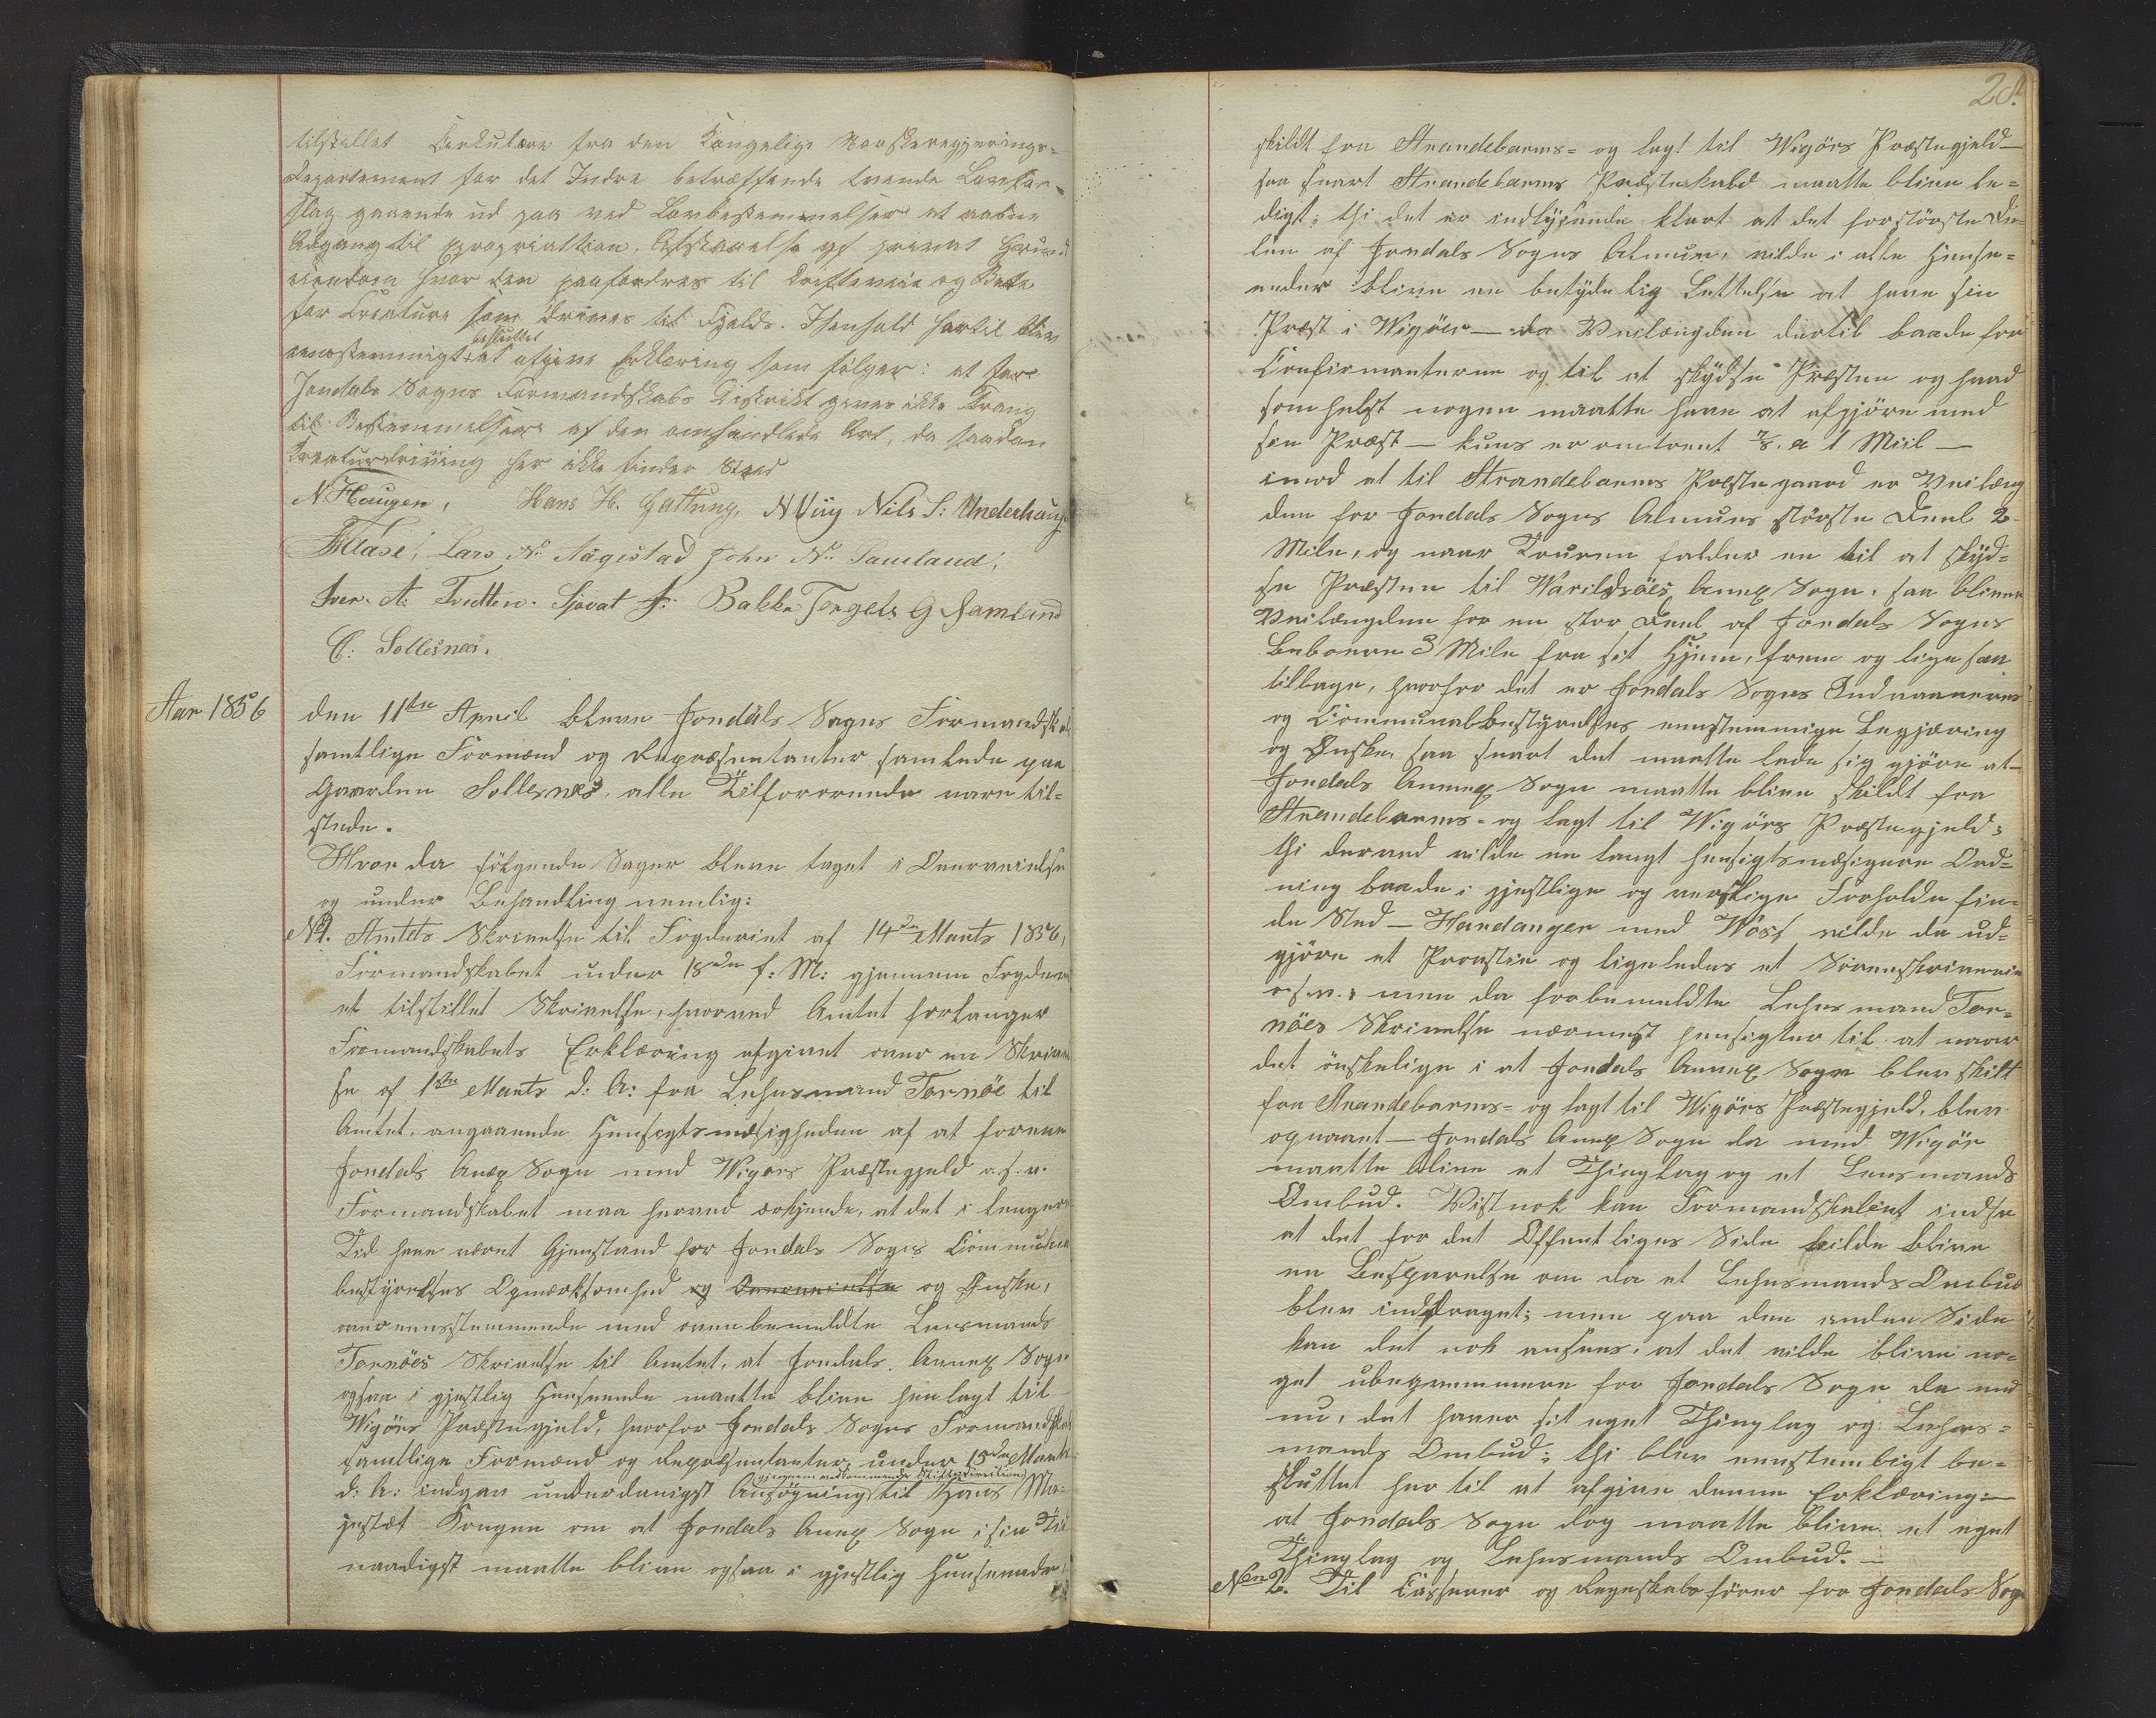 tilstillet Cirkulære fra den Kongelige Norskeregjerings-
Departement for det Indre betræffende trende Lovfor-
slag gaaende ud paa ved Lovbestemmelser at aabne
Adgang til Expropriattion. Afstaaelse af privat Grund
eiendom hvor den paafordres til Driftteveie og Beite
for Creature som drives til Fjelds. I henhold hertil blev
beslluttet
eenstemmigt at afgive Erklæring som følger: at for
Jondals Sogns Formandskabs Distrikt gives ikke Trang
til Bestemmelser af den omhandlede Art, da saadan
Kreaturdrivning her ikke finder Sted
N Haugen, Hans H. Gattung, N Viig Nils S: Underhaug
Lars N. Aagistad John N. Samland,
Iver A. Tvedten. Sjovat J: Bakke Torgels G Samland
C: Sollesnes.
Aar 1856 den 11te April bleve Jondals Sogns Formandskab
samtlige Formænd og Repræsentanter samlede paa
Gaarden Sollesnæs, alle Tilforordnede vare til-
stede.
Hvor da følgende Sager bleve taget i Overveielse
og under Behandling nemlig:
No 1. Amtets Skrivelse til Fogderiet af 14de Marts 1856,
Formandskabet under 18de f: M: gjennem Fogderi
et tilstillet Skrivelse, hvorved Amtet forlanger
Formandskabets Erklæring afgivet over en Skrivel
se af 1ste Marts d: A: fra Lehnsmand Tornöe til
Amtet, angaaende Hensigtsmæsigheden af at forene
Jondals Anex Sogn med Wigörs Præstegjeld o.s.v.
Formandskabet maa herved erkjende, at det i længere
Tid have været Gjenstand for Jondals Sogns Commune
bestyrelses Opmærksomhed og Overveielse og Ønske,
overeensstemmende med ovenbemeldte Lensmands
Tornöes Skrivelse til Amtet, at Jondals Annex Sogn
ogsaa i gjestlig Henseende maatte blive henlagt til
Wigörs Præstegjeld, hvorfor Jondals Sogns Formandskab
samtlige Formænd og Repræsentanter under 15de Marts
gjennem vedkommende Stiftsdirection
d: A: indgav underdanigst Ansögning til Hans Ma-
jestæt Kongen om at Jondals Anex Sogn i sin Tid
naadigst maatte blive ogsaa i gjestlig Henseende
28.
skildt fra Strandebarms- og lagt til Wigörs Præstegjeld
saa snart Strandebarms Præstekald maatte blive le-
digt; thi det er indlysende klart at det forstörste De-
len af Jondals Sogns Almue, vilde i alle Hense-
ender blive en betydelig Lettelse at have sin
Præst i Wigöer — da Veilængden dertil baade for
Confirmanterne og til at skydse Præsten og hvad
somhelst nogen maatte have at afgjöre med
sin Præst — kuns er omtrent 7/8 a 1 Miil —
imod at til Strandebarms Præstegaard er Veilæng
den for Jondals Sogns Almues störste Deel 2
Mile, og naar Touren falder en til at skyd-
se Præsten til Warildsöes Anex Sogn, saa bliver
Veilængden for en stor Deel af Jondals Sogns
Beboere 3 Mile fra sit Hjem, frem og lige saa
tilbage, hvorfor det er Jondals Sogns Indvaaneres
og Communalbestyrelses eenstemmige Begjæring
og Ønske, saa snart det maatte lade sig gjöre at
Jondals Annex Sogn maatte blive skildt fra
Strandebarms- og lagt til Wigörs Præstegjeld;
thi derved vilde en langt hensigtsmæsigere Ord-
ning baade i gjestlige og verslige Forholde fin-
de Sted — Hardanger med Woss vilde da ud-
gjöre et Provstie og ligeledes et Sörenskriverie
o.s.v.; men da forbemeldte Lehnsmand Tor-
nöes Skrivelse nærmest hensigter til at naar
det önskelige i at Jondals Annex Sogn blev skilt
fra Strandebarms- og lagt til Wigörs Præstegjeld, blev
opnaaet — Jondals Anex Sogn da med Wigör
maatte blive et Thinglag og et Lensmands
Ombud. Vistnok kan Formandskabet indse
at det for det Offentliges Side vilde blive
en Besparelse om da et Lehnsmands Ombud
blev inddraget; men paa den anden Side
kan det nok ansees, at det vilde blive no-
get ubeqvemmere for Jondals Sogn da end
nu, det haver sit eget Thinglag og Lehns-
mands Ombud; thi blev eenstembigt be-
sluttet her til at afgive denne Erklæring:
at Jondals Sogn dog maatte blive et eget
Thinglag og Lehnsmands Ombud. —
No 2. Til Casserer og Regnskabsförer for Jondals Sogn